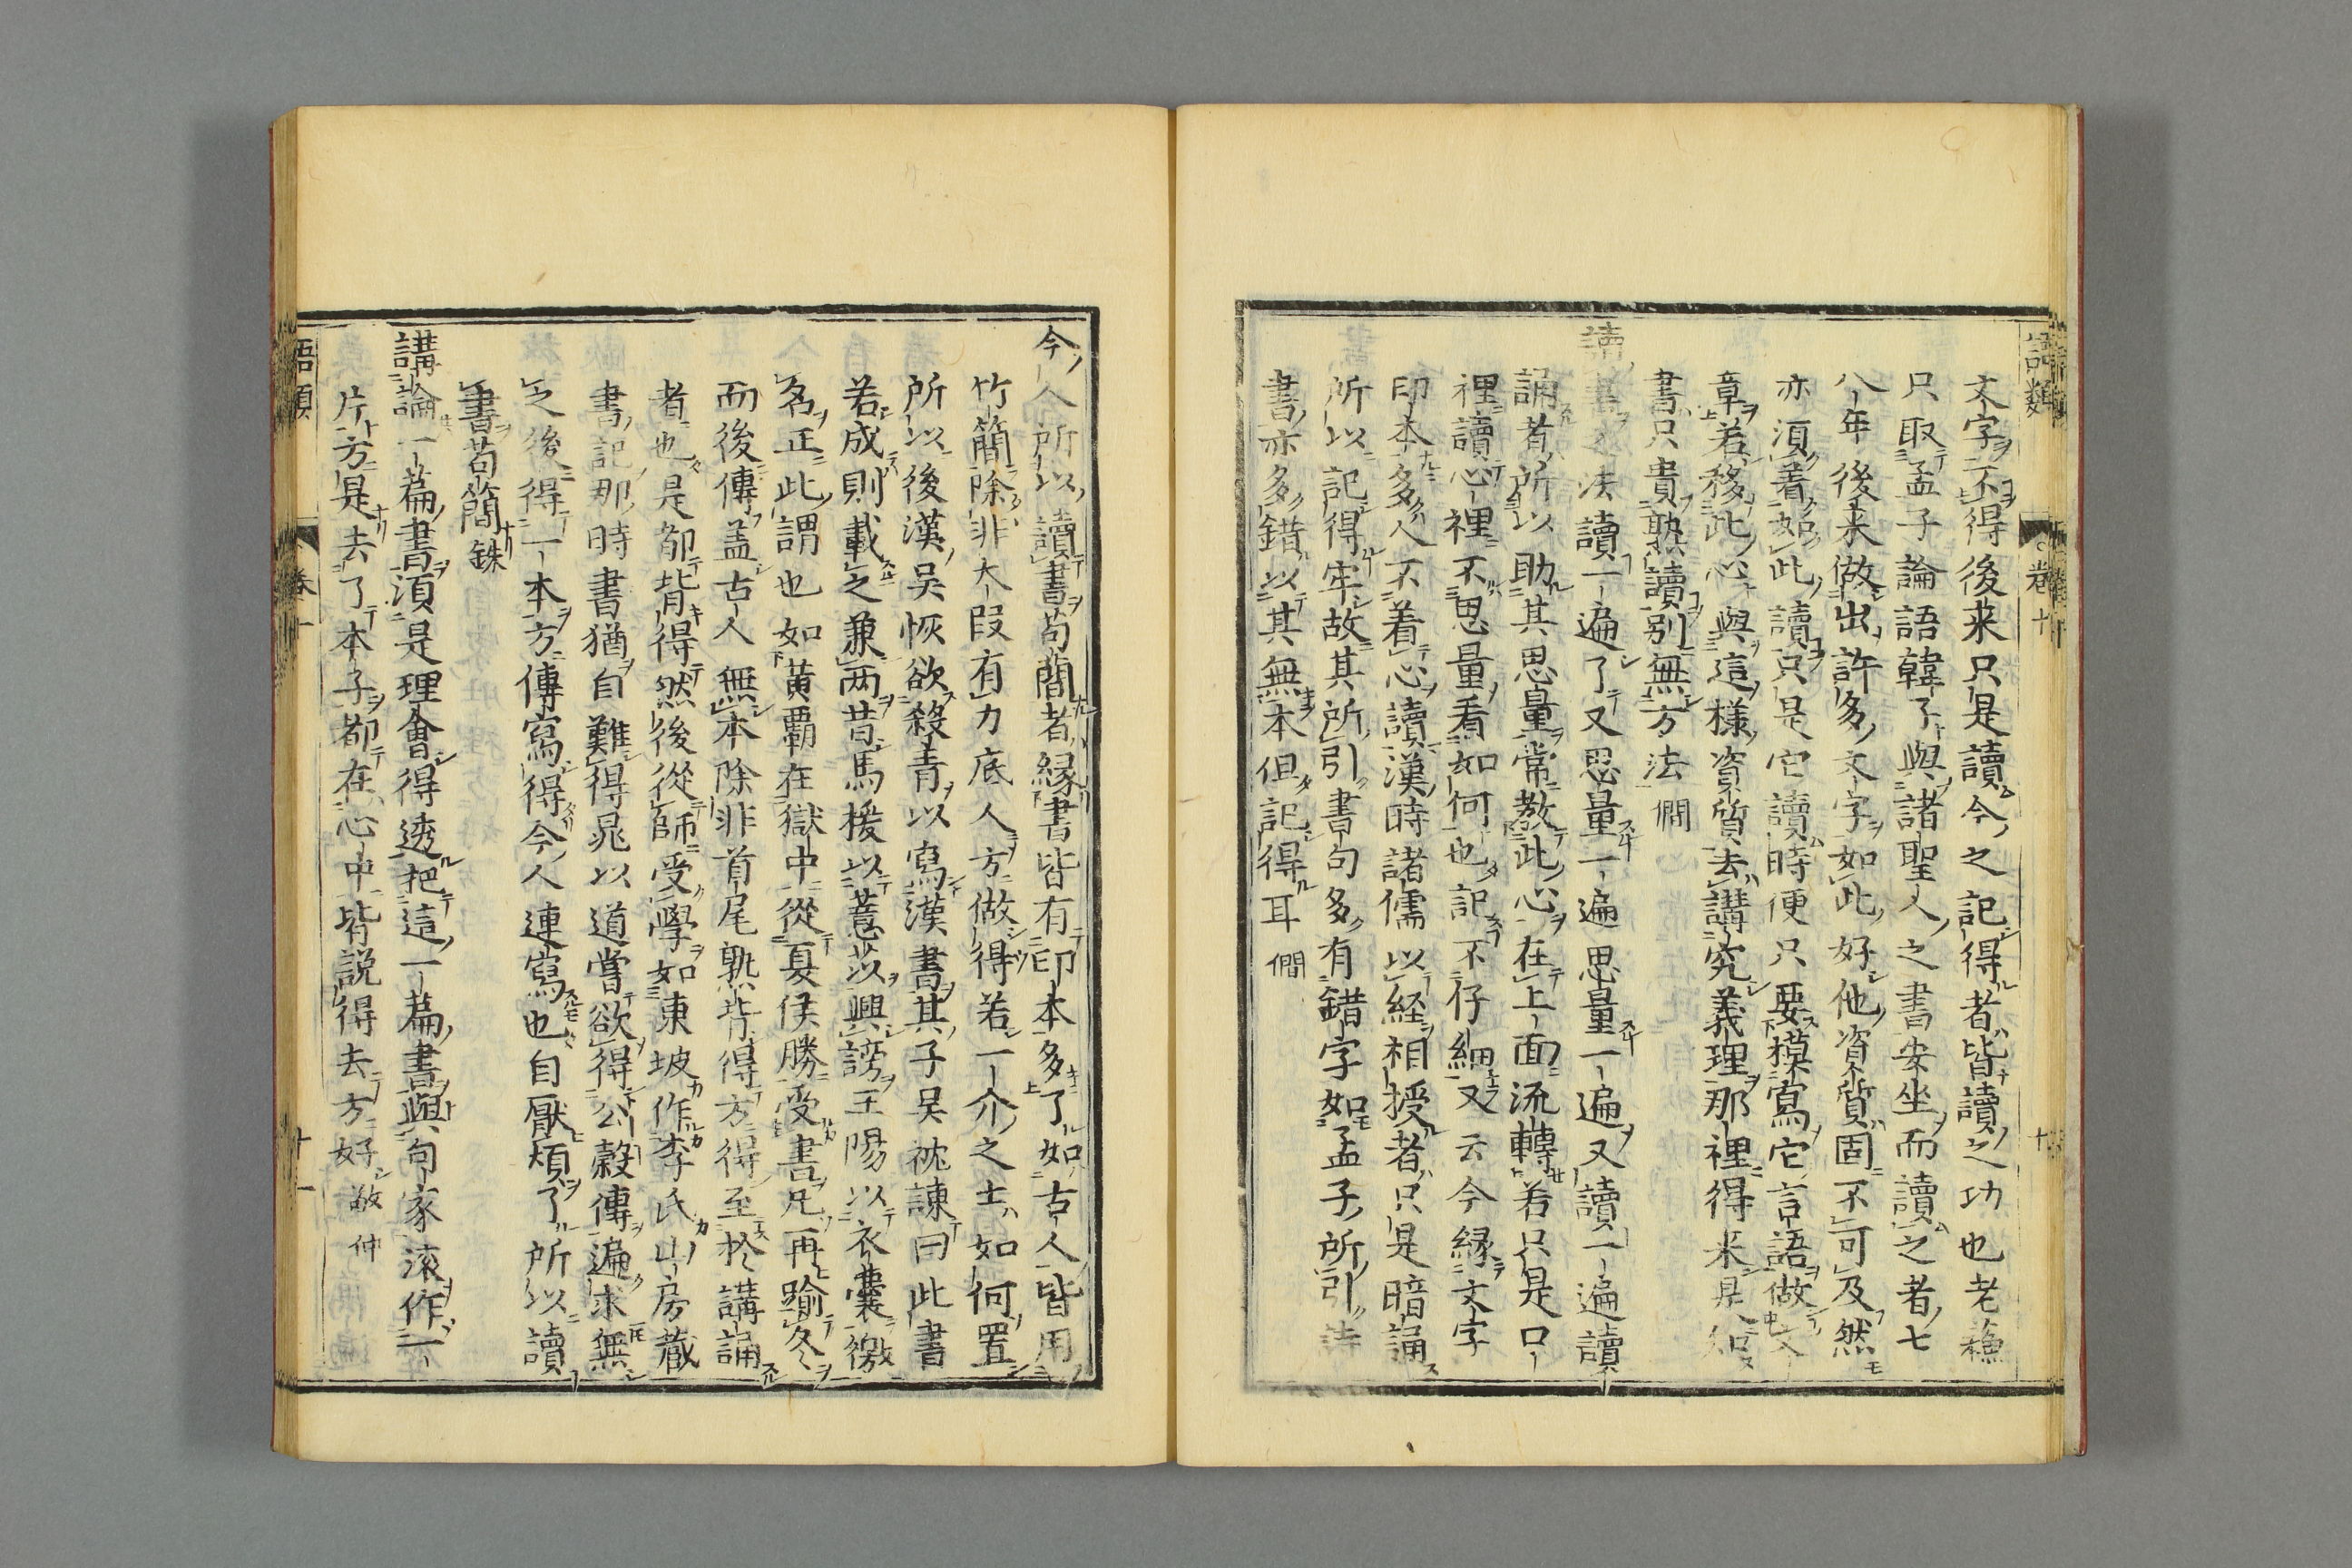 語類
卷十
十
文字不得後来只是讀今之記得者皆讀之功也老蘓
只取孟子論語韓子與諸聖人之書安坐而讀之者七
八年後来做出許多文字如此好他資質固不可及然
亦須着如此讀只是它讀時便只要模寫它言語做文
章若移此心與這様資質去講究義理那裡得来是知
書只貴熟讀别無方法 僩
讀書之法讀一遍了又思量一遍思量一遍又讀一遍讀
誦者所以助其思量常教此心在上面流轉若只是口
裡讀心裡不思量看如何也記不仔細又云今縁文字
印本多人不着心讀漢時諸儒以経相授者只是暗誦
所以記得牢故其所引書句多有錯字如孟子所引詩
書亦多錯以其無本但記得耳 僩
今人所以讀書苟簡者縁書皆有印本多了如古人皆用
竹簡除非大叚有力底人方做得若一介之士如何置
所以後漢吴恢欲殺青以寫漢書其子吴祐諫曰此書
若成則載之兼两昔馬援以薏苡興謗王陽以衣囊徼
名正此謂也如黄覇在獄中從夏侯勝受書凡再踰冬
而後傳盖古人無本除非首尾熟背得方得至於講誦
者也是都背得然後從師受學如東坡作李氏山房藏
書記那時書猶自難得晁以道嘗欲得公穀傳遍求無
之後得一本方傳寫得今人連寫也自厭煩了所以讀
書苟簡 銖
講論一篇書須是理會得透把這一篇書與句家滚作一
片方是去了本子都在心中皆説得去方好 敬仲
語類
卷十
十一